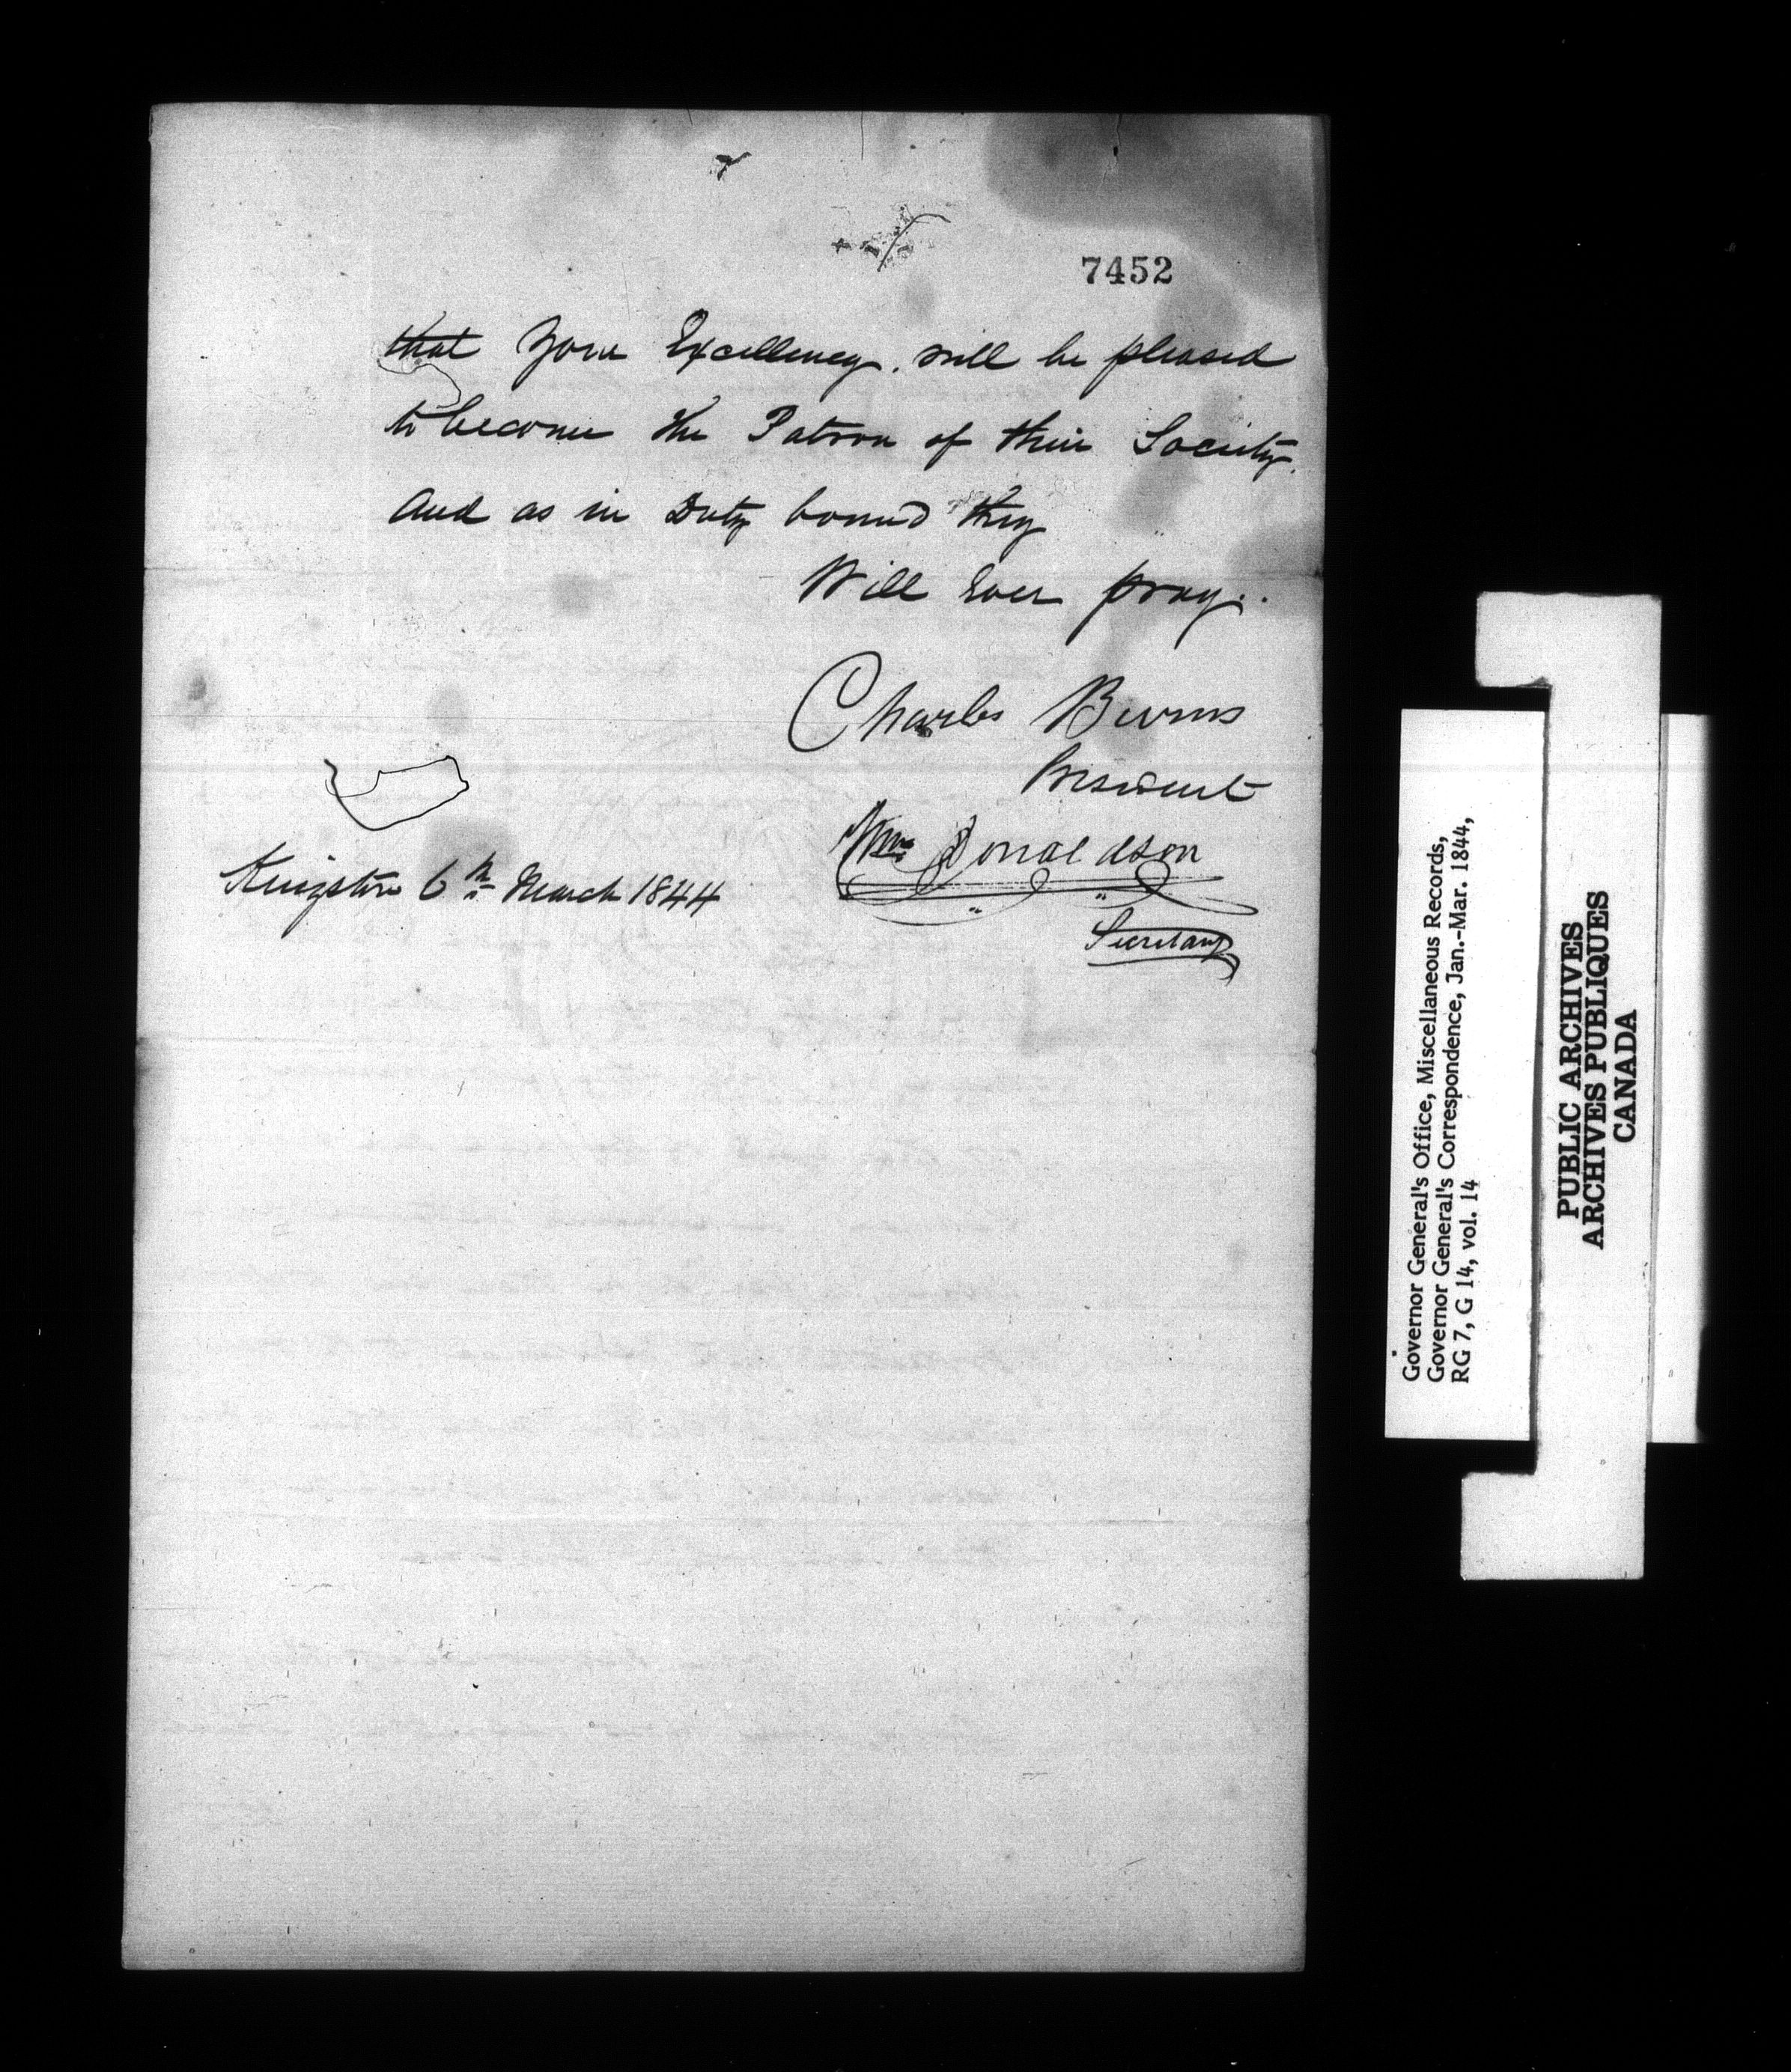 7452
that Your Excellency. will be pleased
to become the Patron of their Society.
And as in Duty bound they
Will Ever pray..
Charles Burns
President
Wm Donaldson
Secretary
Kingston 6th March 1844
Governor General's Office, Miscellaneous Records,
Governor General's Correspondence, Jan.-Mar. 1844,
RG 7, G 14, vol. 14
PUBLIC ARCHIVES
ARCHIVES PUBLIQUES
CANADA